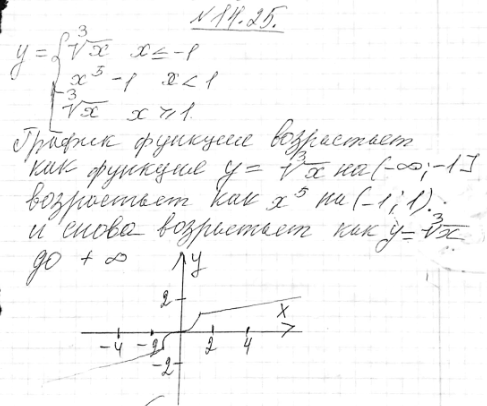 №14.25.
y = { ∛x x ≤ -1
x⁵ -1 x < 1
∛x x ⩾ 1.
График функции возрастает
как функция y = ∛x на (-∞; -1]
возрастает как x⁵ на (-1; 1).
и снова возрастает как y = ∛x
до + ∞
y
2
x
-4 -2 2 4
-2